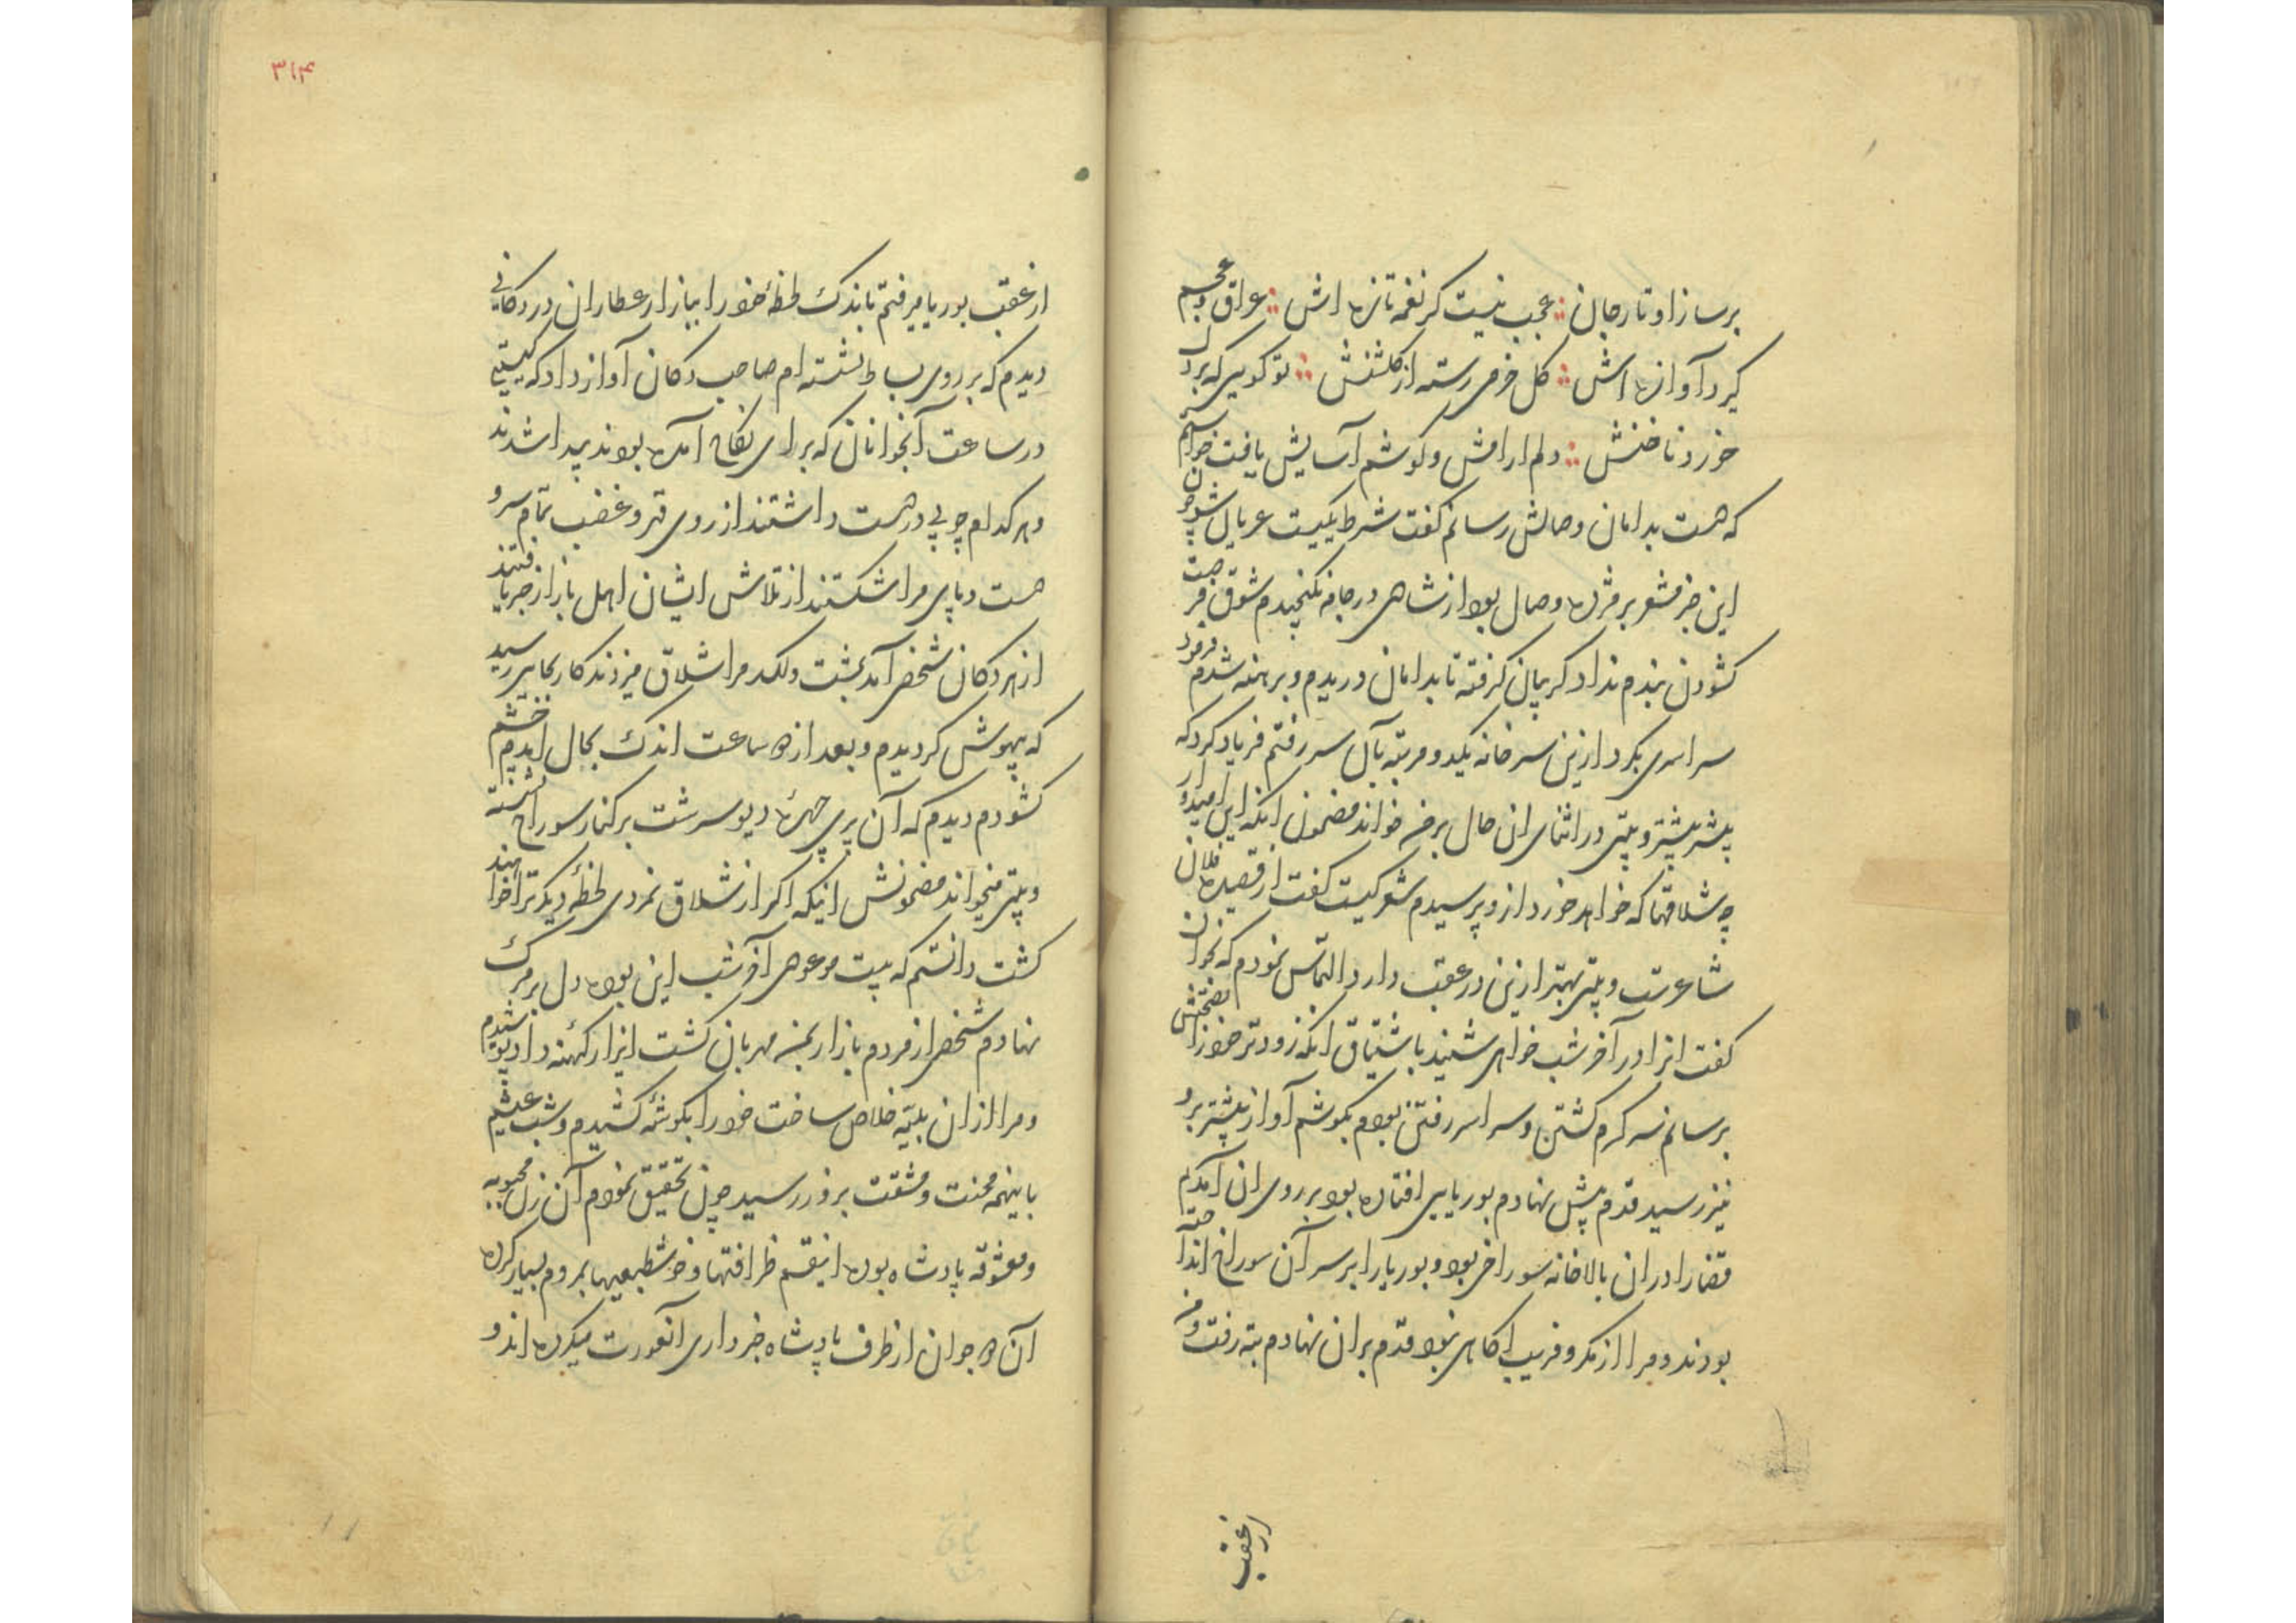 برساز او تار جان عجب نیست کر نغمه تازه اش عراق و عجم
کیرد آوازه اش کل خرمی رسته از کلشنش تو کویی که بر دل
خورد ناخنش دلم ارامش و کوشم آسایش یافت خواستم
که دست بدامان وصالش رسانم کفت شرط یکیست عریان شو چون
این خبر مشعر بر مژده وصال بود از شادی در جامه نکنجیدم شوق فرصت
کشودن بندم نداد کریبان کرفته تا بدامان دریدم و برهنه شدم فرمود
سراسری بکرد ازین سر خانه یکدو مرتبه بآن سر رفتم فریاد کرد که
پیشتر پیشتر و بیتی در اثنای ان حال برمن خواند مضمون انکه این امیدوار
چه شلاقها که خواهد خورد از و پرسیدم شعر کیست کفت از قصیده فلان
شاعرست و بیتی بهتر ازین در عقب دارد التماس نمودم که بخوان
کفت انرا در آخر شب خواهی شنید باشتیاق انکه زودتر خود را بصحبتش
برسانم سر کرم کشتن و سراسر رفتن بودم بکوشم آواز پیشتر برو
نیز رسید قدم پیش نهادم بوریایی افتاده بود بر روی ان آمدم
قضارا در ان بالاخانه سوراخی بود و بوریا را بر سر آن سوراخ انداخته
بودند و مرا از مکر و فریب اکاهی نبود قدم بران نهادم بته رفت و من
از عقب
۳۱۴
از عقب بوریا میرفتم باندک لحظه خود را ببازار عطاران در دکانی
دیدم که بر روی بساط نشسته ام صاحب دکان آواز داد که کیستی
در ساعت آنجوانان که برای نکاح آمده بودند پیدا شدند
و هر کدام چوبی در دست داشتند از روی قهر و غضب تمام سر و
دست و پای مرا شکستند از تلاش ایشان اهل بازار خبر یافتند
از هر دکان شخصی آمد بمشت و لکد مرا شلاق میزدند کار بجایی رسید
که بیهوش کردیدم و بعد از ده ساعت اندک بحال امدم چشم
کشودم دیدم که آن پری چهره دیو سرشت بر کنار سوراخ نشسته
و بیتی میخواند مضمونش اینکه اکر از شلاق نمردی لحظه دیکر ترا خواهند
کشت دانستم که بیت موعودی آخر شب این بوده دل بر مرک
نهادم شخصی از مردم بازار بمن مهربان کشت ایزار کهنه داد پوشیدم
و مرا از ان بلیه خلاص ساخت خود را بکوشه کشیدم و شب عیشم
باینهمه محنت و مشقت بروز رسید چون تحقیق نمودم آن زن محبوبه
و معشوقه پادشاه بوده اینقسم ظرافتها و خوشطبعیها بمردم بسیار کرده
آن ده جوان از طرف پادشاه خبرداری آنعورت میکرده اند و